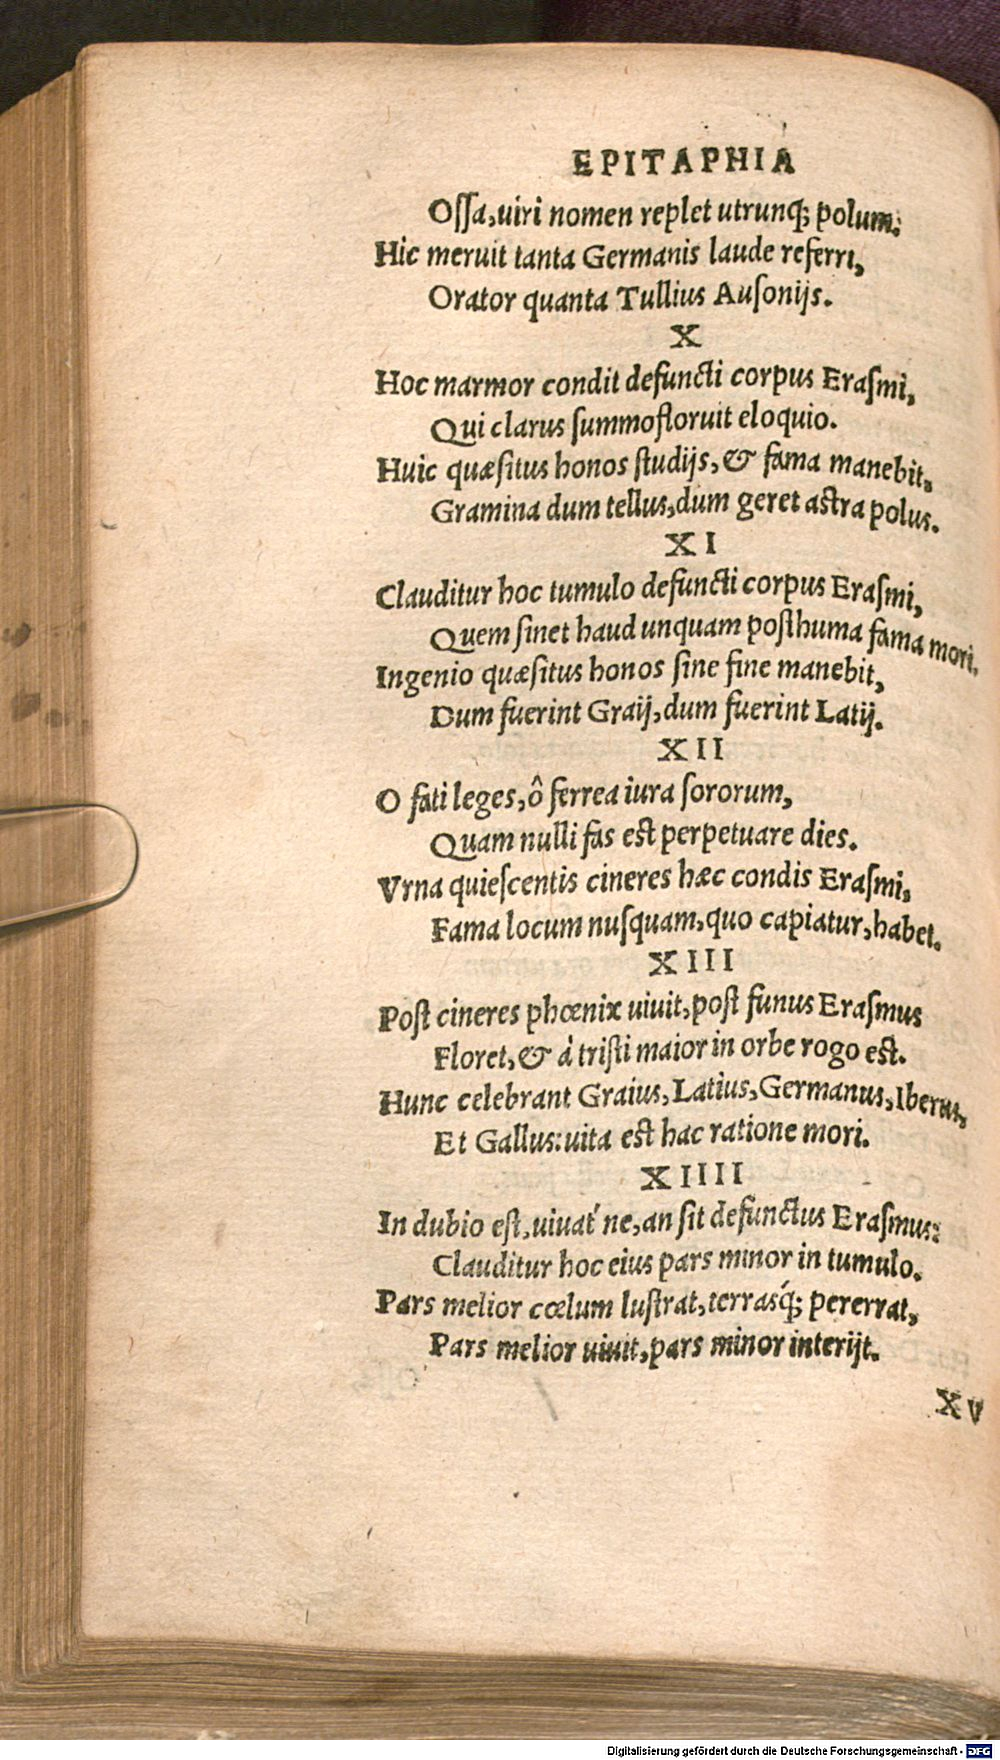 EPITAPHIA
Ossa, uiri nomen replet utrunq; polum.
Hic meruit tanta Germanis laude referri,
Orator quanta Tullius Ausonijs.
X
Hoc marmor condit defuncti corpus Erasmi,
Qui clarus summo floruit eloquio.
Huic quæsitus honos studijs, & fama manebit,
Gramina dum tellus, dum geret astra polus.
XI
Clauditur hoc tumulo defuncti corpus Erasmi,
Quem sinet haud unquam posthuma fama mori.
Ingenio quæsitus honos sine fine manebit,
Dum fuerint Graij, dum fuerint Latij.
XII
O fati leges, ô ferrea iura sororum,
Quam nulli fas est perpetuare dies.
Vrna quiescentis cineres hæc condis Erasmi,
Fama locum nusquam, quo capiatur, habet.
XIII
Post cineres phœnix uiuit, post funus Erasmus
Floret, & à tristi maior in orbe rogo est.
Hunc celebrant Graius, Latius, Germanus, Iberus,
Et Gallus: uita est hac ratione mori.
XIIII
In dubio est, uiuat´ne, an sit defunctus Erasmus:
Clauditur hoc eius pars minor in tumulo.
Pars melior cœlum lustrat, terrasq́; pererrat,
Pars melior uiuit, pars minor interijt.
XV
Digitalisierung gefördert durch die Deutsche Forschungsgemeinschaft - DFG